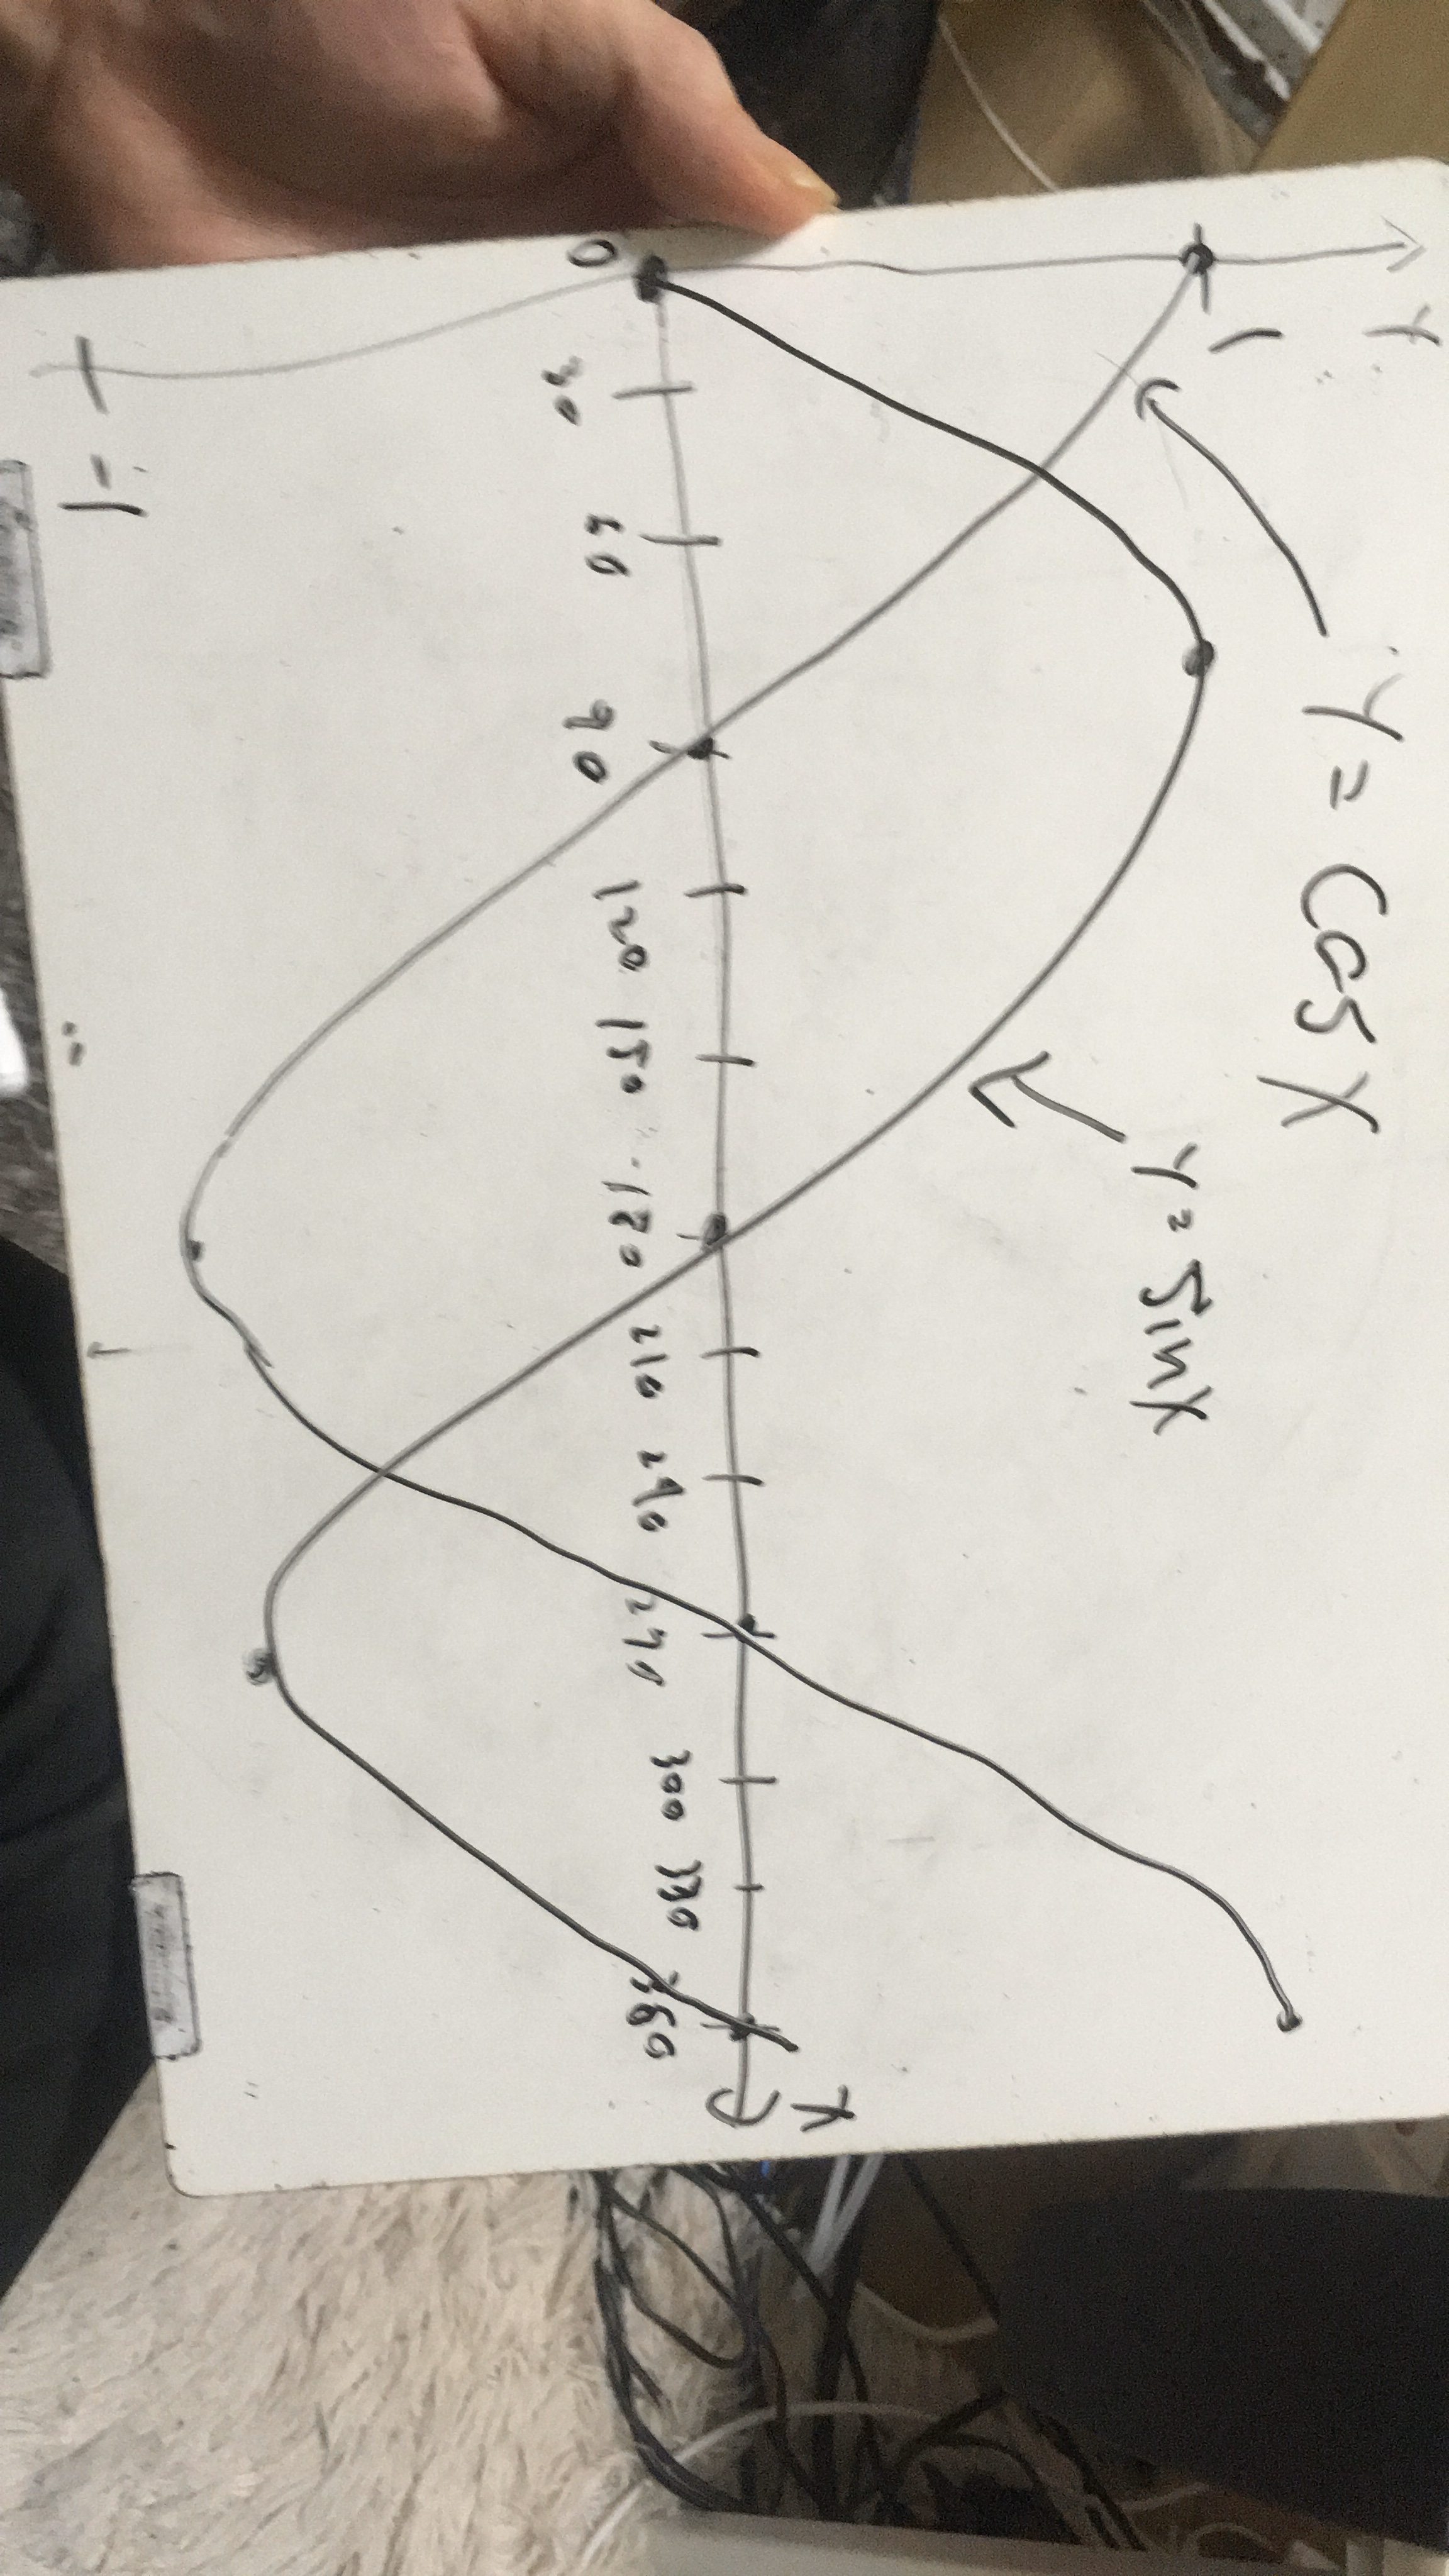 Y
y = cos x
1
y = sin x
x
0 30 60 90 120 150 180 210 240 270 300 330 360
-1